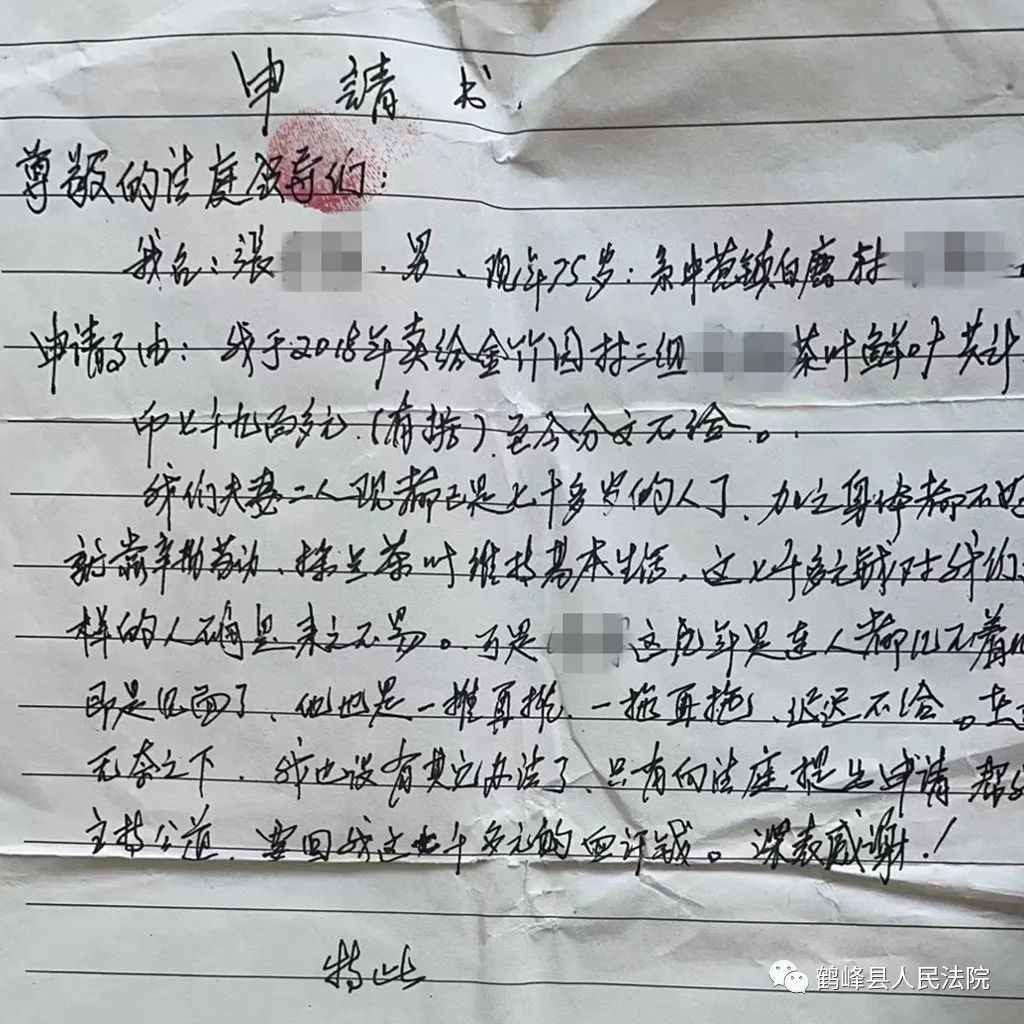 申請书.
尊敬的法庭领导们:
我名:張 . 男、现年75岁:系中营镇白鹿村
申请事由: 我于2018年卖给金竹园村三组 茶叶鲜叶共计
即七千九百多元.(有据)至今分文不给。
我们夫妻二人现都已是七十多岁的人了,加之身体都不
就靠辛勤劳动、採点茶叶维持基本生活,这七千多元钱对我们
样的人确是来之不易。可是 这几年是连人都见不着
即是见面了、他也是一推再推、一拖再拖、迟迟不给。在
无奈之下.我也没有其它办法了、只有向法庭提出申请
主持公道,要回我这七千多元的血汗钱。深表感谢!
特此
鹤峰县人民法院